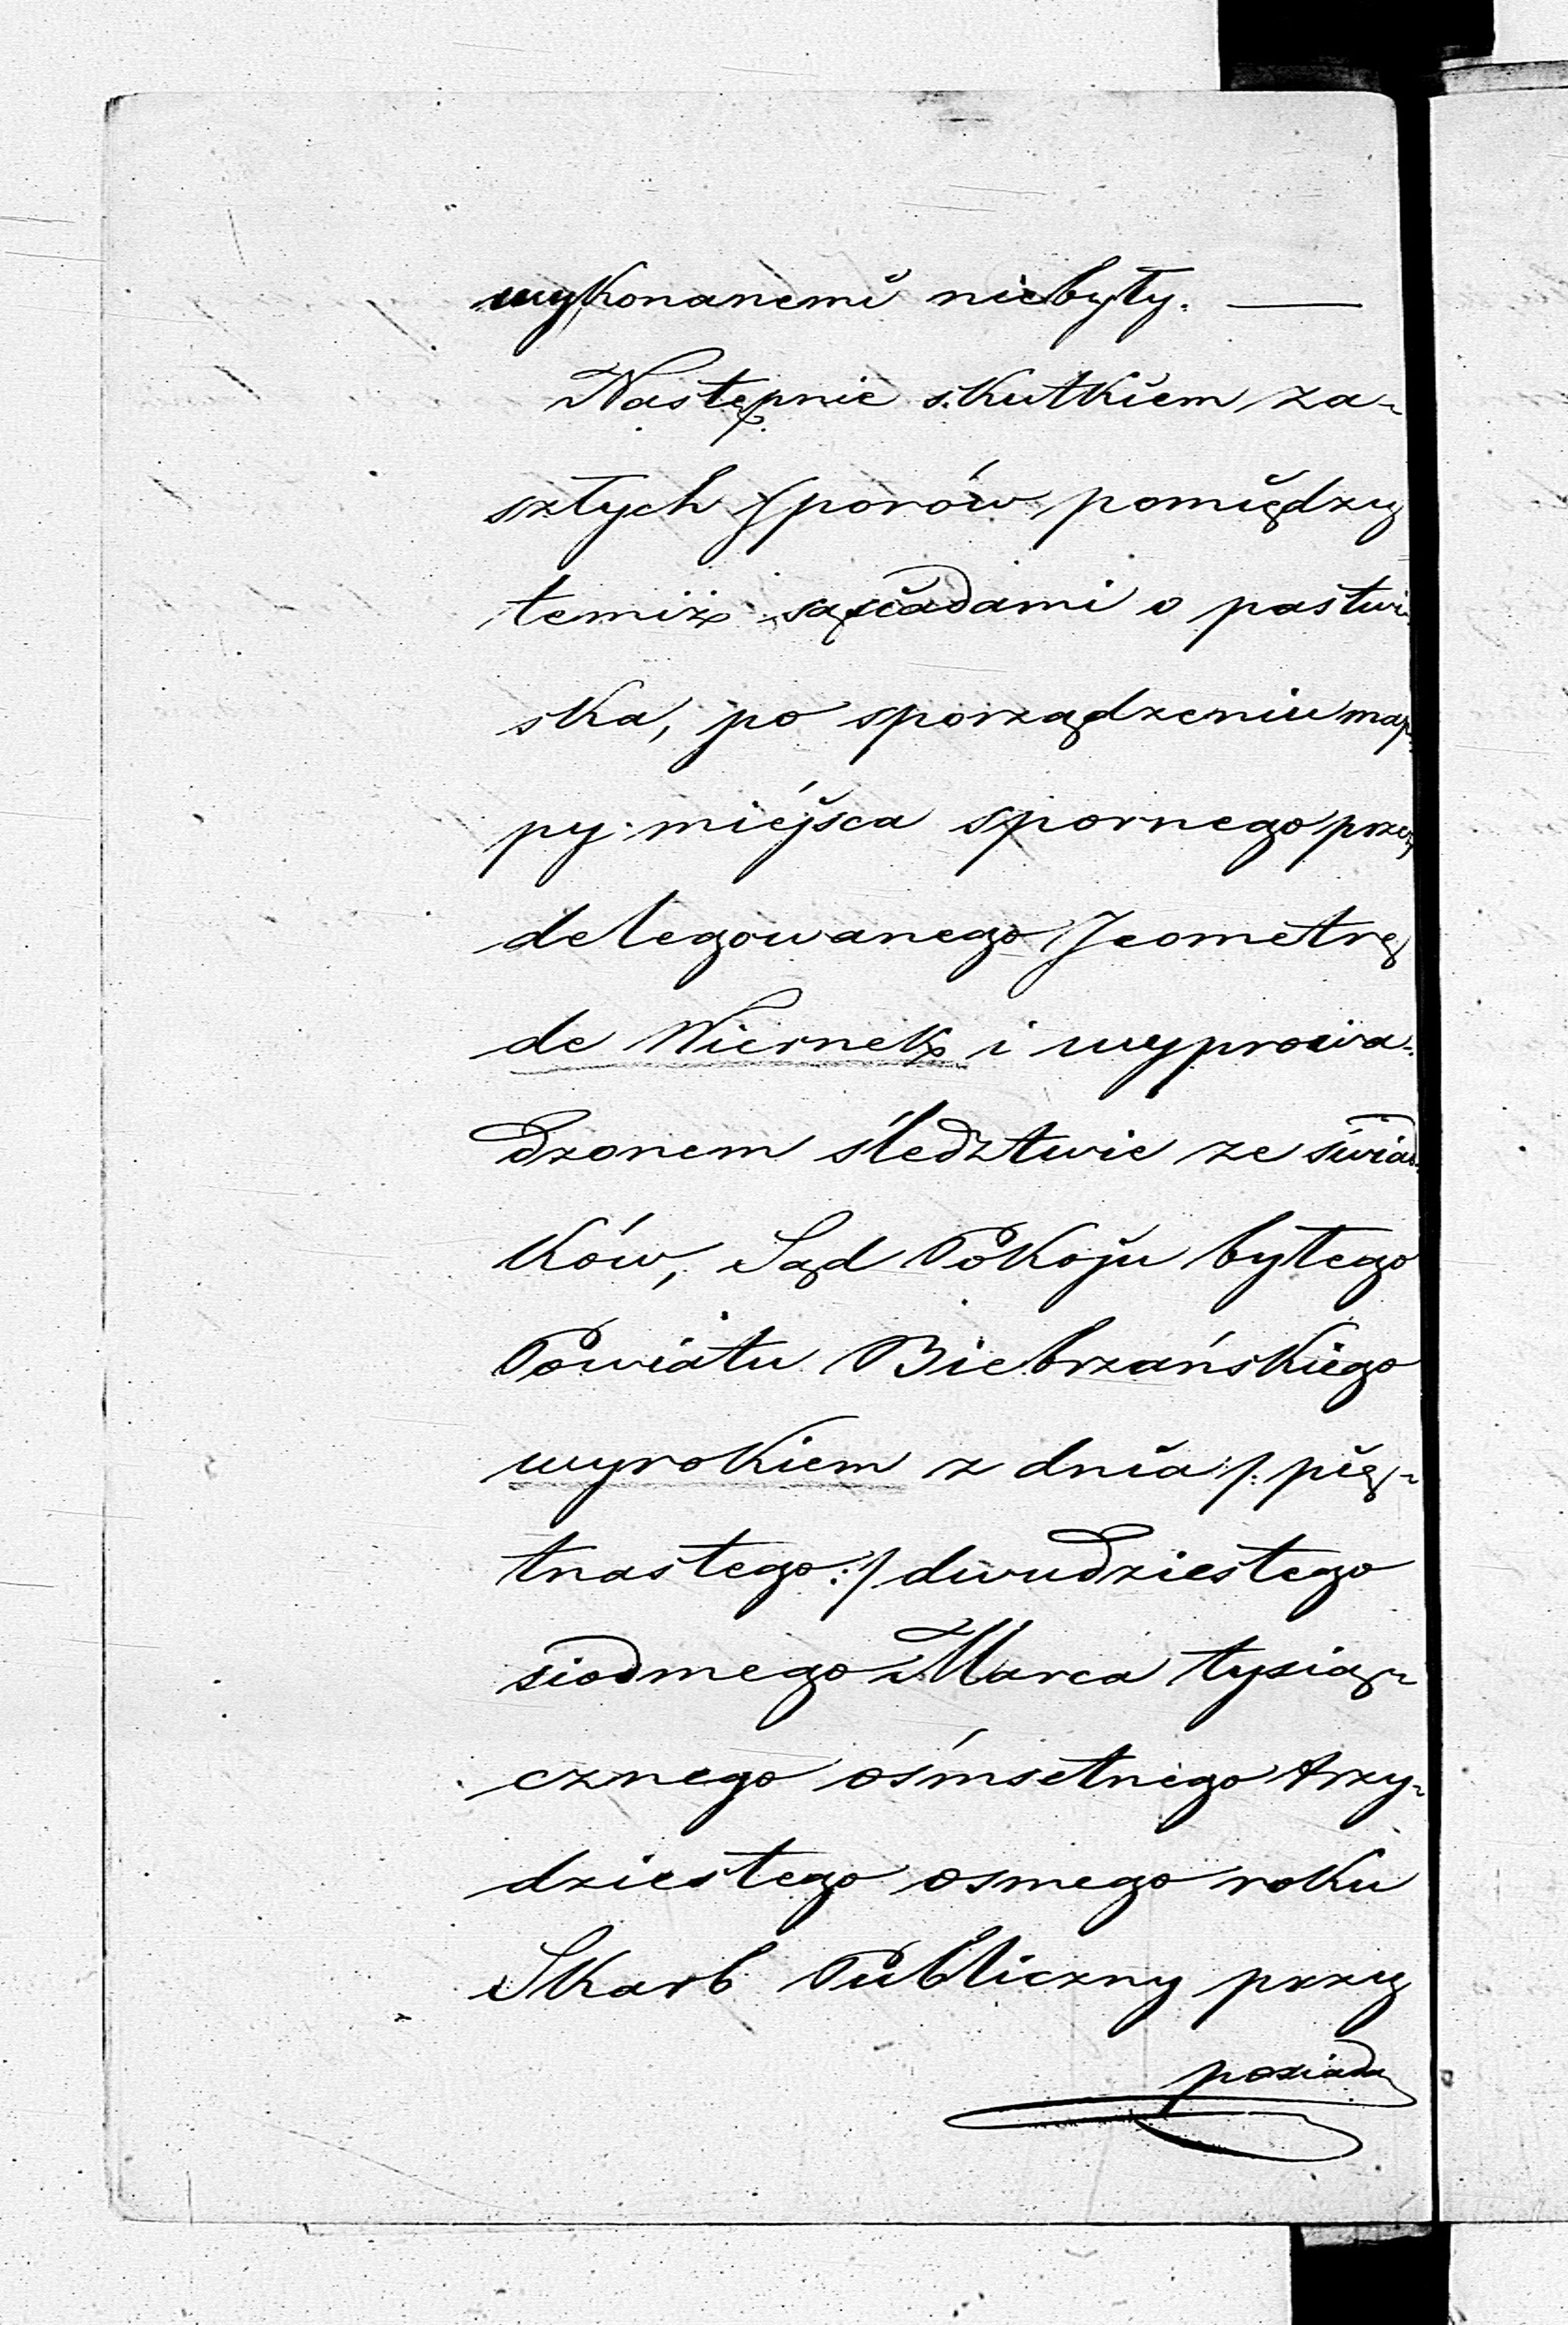 wykonanemi niebyły. —
Następnie skutkiem za-
szłych sporów pomiędzy
temiż sąsiadami o pastwi-
ska, po sporządzeniu map-
py miejsca spornego przez
delegowanego Jeometrę
de Wiernek i wyprowa-
dzonem śledztwie ze świad-
ków, Sąd Pokoju byłego
Powiatu Biebrzańskiego
wyrokiem z dnia /: pię-
tnastego :/ dwudziestego
siodmego Marca tysiąc-
cznego ośmsetnego trzy-
dziestego osmego roku
Skarb Publiczny przy
posiada